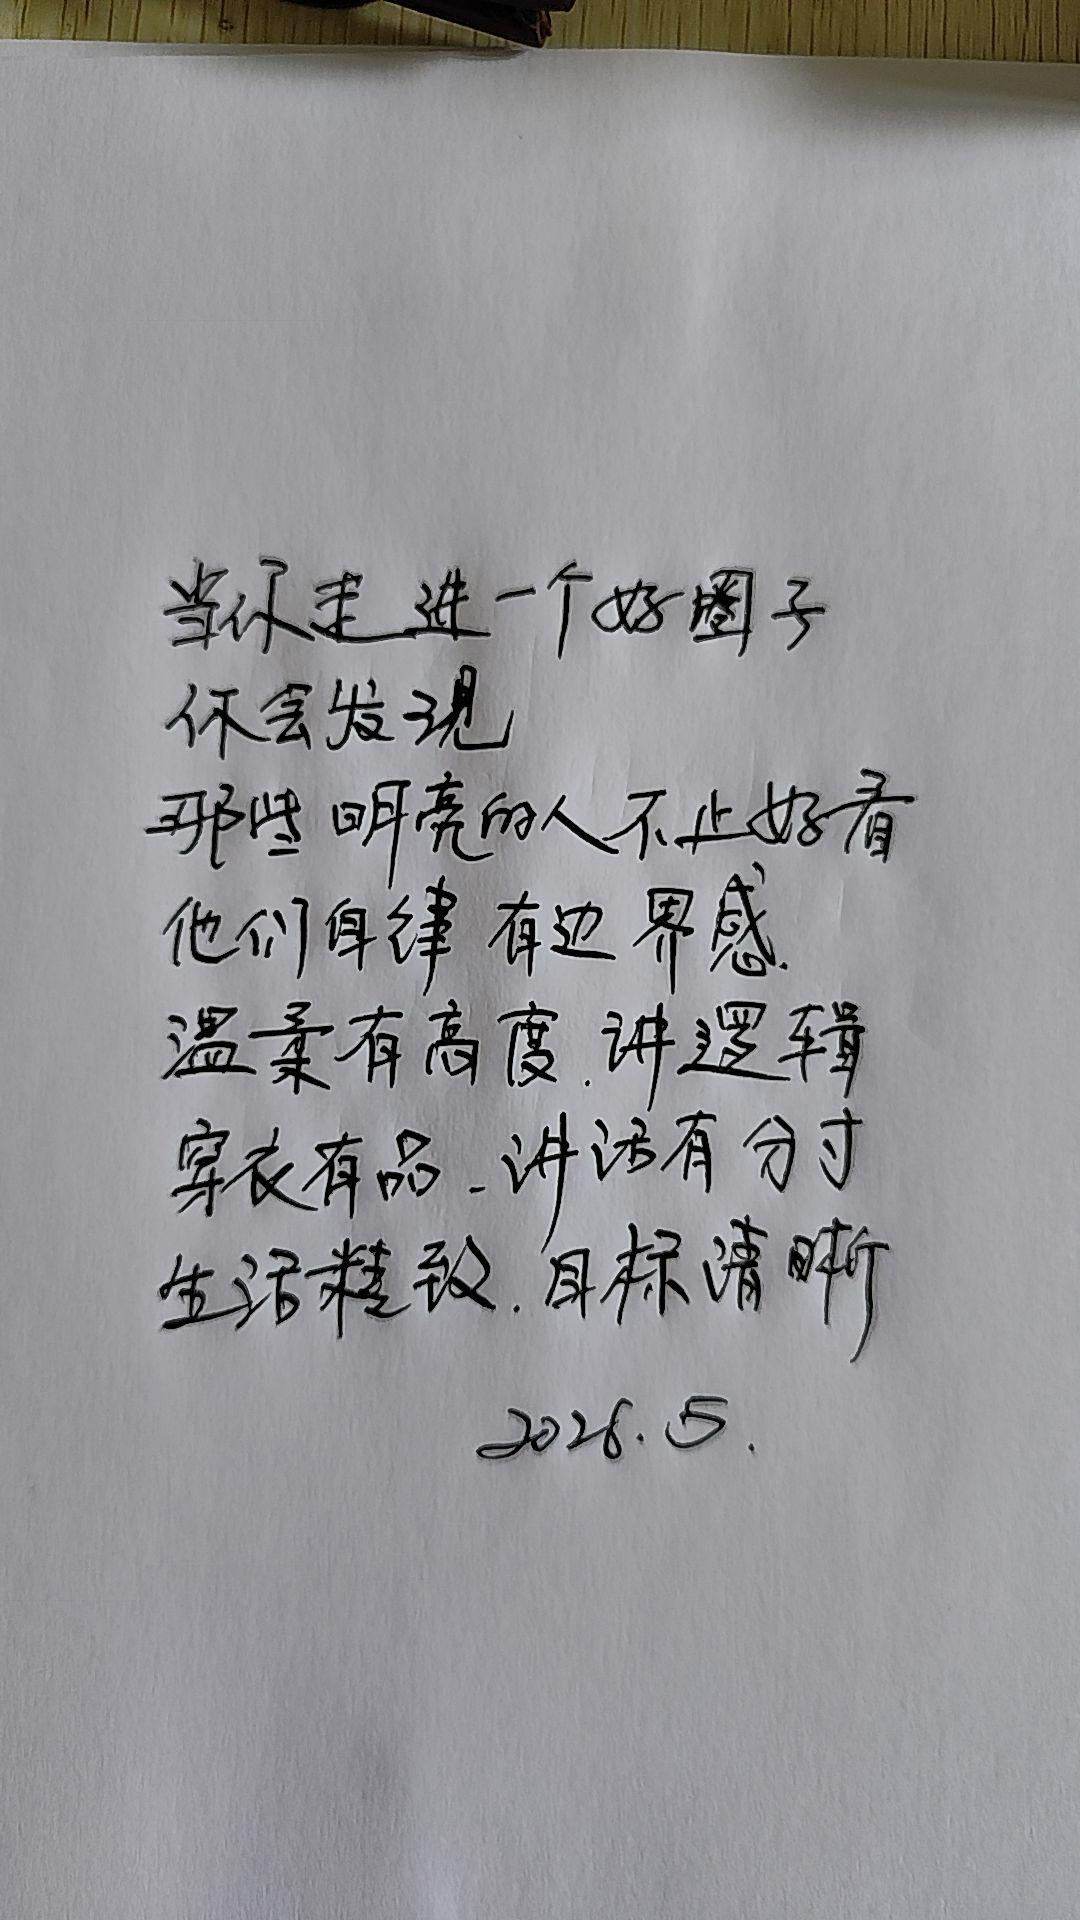 当你走进一个好圈子
你会发现
那些明亮的人不止好看
他们自律 有边界感.
温柔有高度.讲逻辑
穿衣有品-讲话有分寸
生活精致.目标清晰
2026.5.